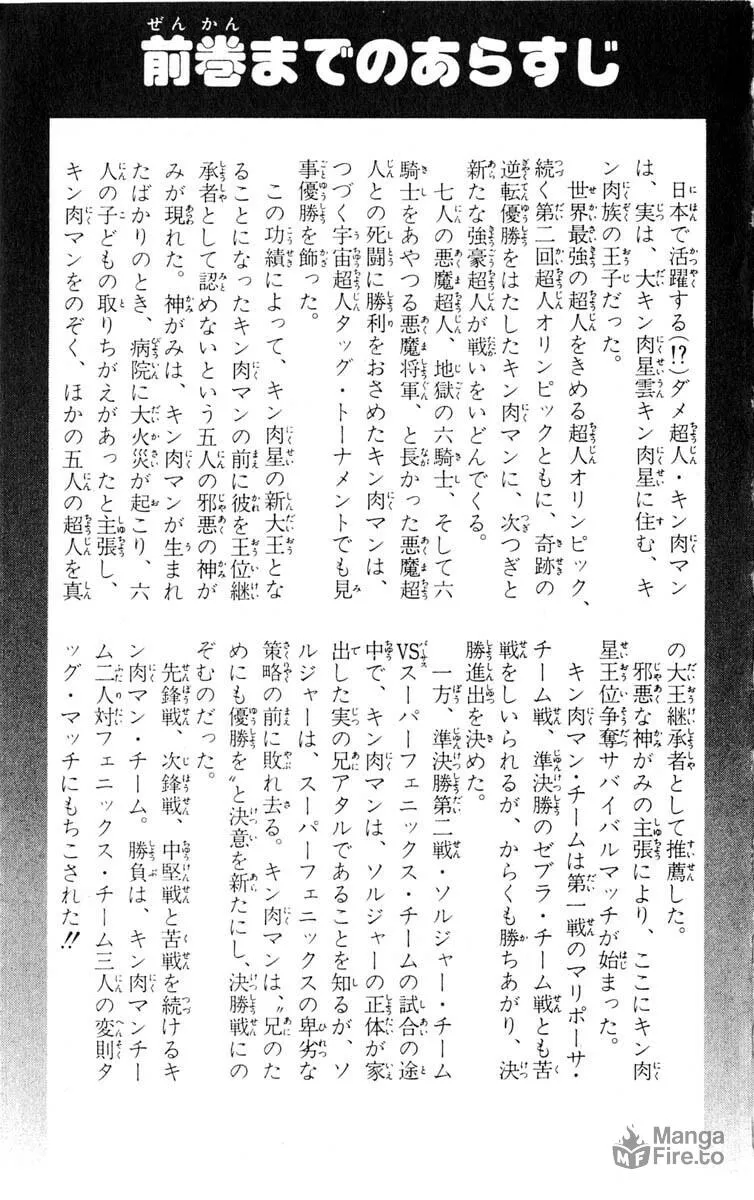 前巻までのあらすじ
日本で活躍する(!?)ダメ超人・キン肉マン
は、実は、大キン肉星雲キン肉星に住む、キ
ン肉族の王子だった。
世界最強の超人をきめる超人オリンピック、
続く第二回超人オリンピックともに、奇跡の
逆転優勝をはたしたキン肉マンに、次つぎと
新たな強豪超人が戦いをいどんでくる。
七人の悪魔超人、地獄の六騎士、そして六
騎士をあやつる悪魔将軍、と長かった悪魔超
人との死闘に勝利をおさめたキン肉マンは、
つづく宇宙超人タッグ・トーナメントでも見
事優勝を飾った。
この功績によって、キン肉星の新大王とな
ることになったキン肉マンの前に彼を王位継
承者として認めないという五人の邪悪の神が
みが現れた。神がみは、キン肉マンが生まれ
たばかりのとき、病院に大火災が起こり、六
人の子どもの取りちがえがあったと主張し、
キン肉マンをのぞく、ほかの五人の超人を真
の大王継承者として推薦した。
邪悪な神がみの主張により、ここにキン肉
星王位争奪サバイバルマッチが始まった。
キン肉マン・チームは第一戦のマリポーサ・
チーム戦、準決勝のゼブラ・チーム戦とも苦
戦をしいられるが、からくも勝ちあがり、決
勝進出を決めた。
一方、準決勝第二戦・ソルジャー・チーム
VSスーパーフェニックス・チームの試合の途
中で、キン肉マンは、ソルジャーの正体が家
出した実の兄アタルであることを知るが、ソ
ルジャーは、スーパーフェニックスの卑劣な
策略の前に敗れ去る。キン肉マンは、〝兄のた
めにも優勝を〟と決意を新たにし、決勝戦にの
ぞむのだった。
先鋒戦、次鋒戦、中堅戦と苦戦を続けるキ
ン肉マン・チーム。勝負は、キン肉マンチー
ム二人対フェニックス・チーム三人の変則タ
ッグ・マッチにもちこされた!!
MangaFire.to